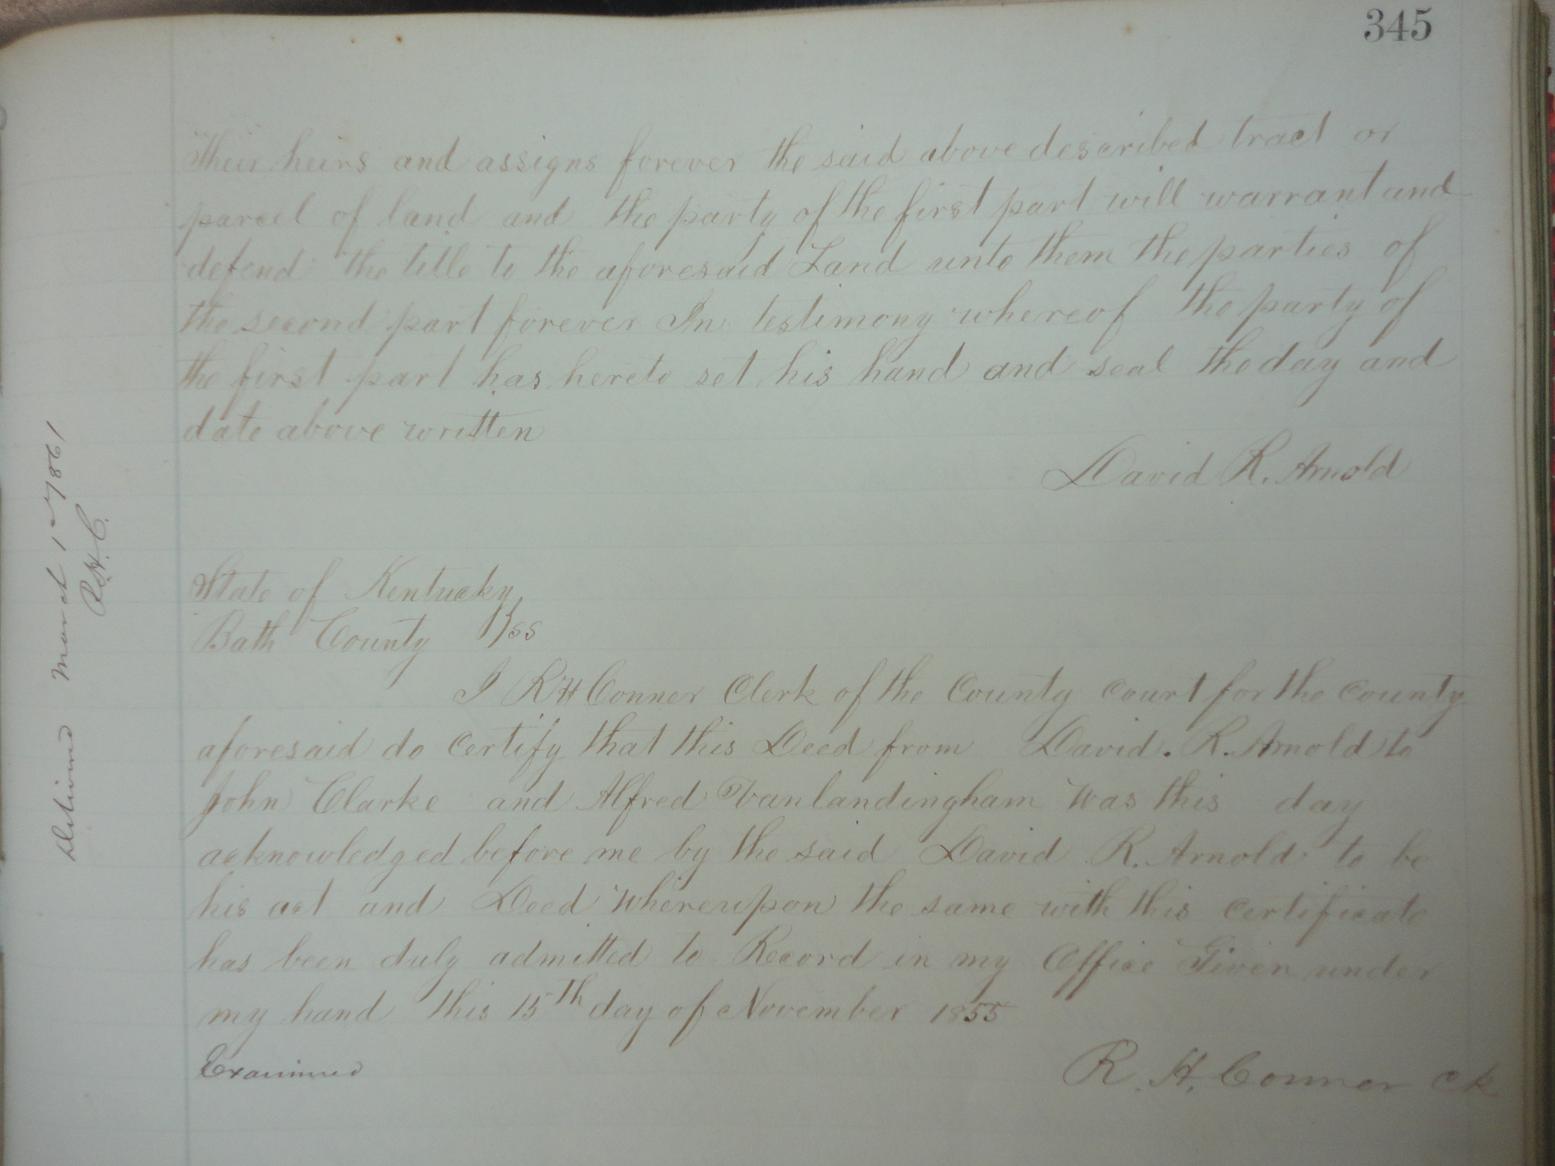 345
Their heirs and assigns forever the said above described tract or
parcel of land and the party of the first part will warrant and
defend the title to the aforesaid Land unto them the parties of
the second part forever In testimony whereof the party of
the first part has hereto set his hand and seal the day and
date above written
David R. Arnold
State of Kentucky
Bath County } ss
I R H Conner Clerk of the County Court for the County
aforesaid do Certify that this Deed from David. R. Arnold to
John Clarke and Alfred Vanlandingham Was this day
acknowledged before me by the said David R. Arnold to be
his act and Deed Whereupon the same with this Certificate
has been duly admitted to Record in my Office Given under
my hand this 15th day of November 1855
Examined
R. H. Conner Ck
March 1 1861
R.H.C.